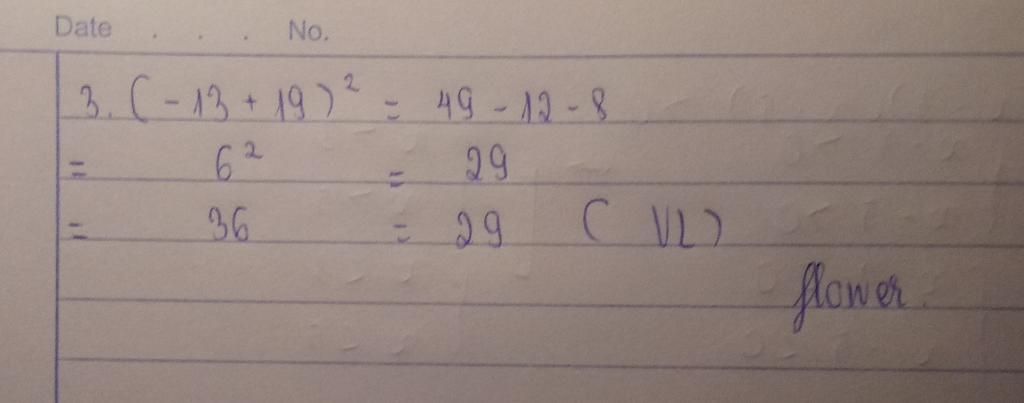 Date . . . No.
3. (-13 + 19)² = 49 - 12 - 8
= 6² = 29
= 36 = 29 ( VL)
flower